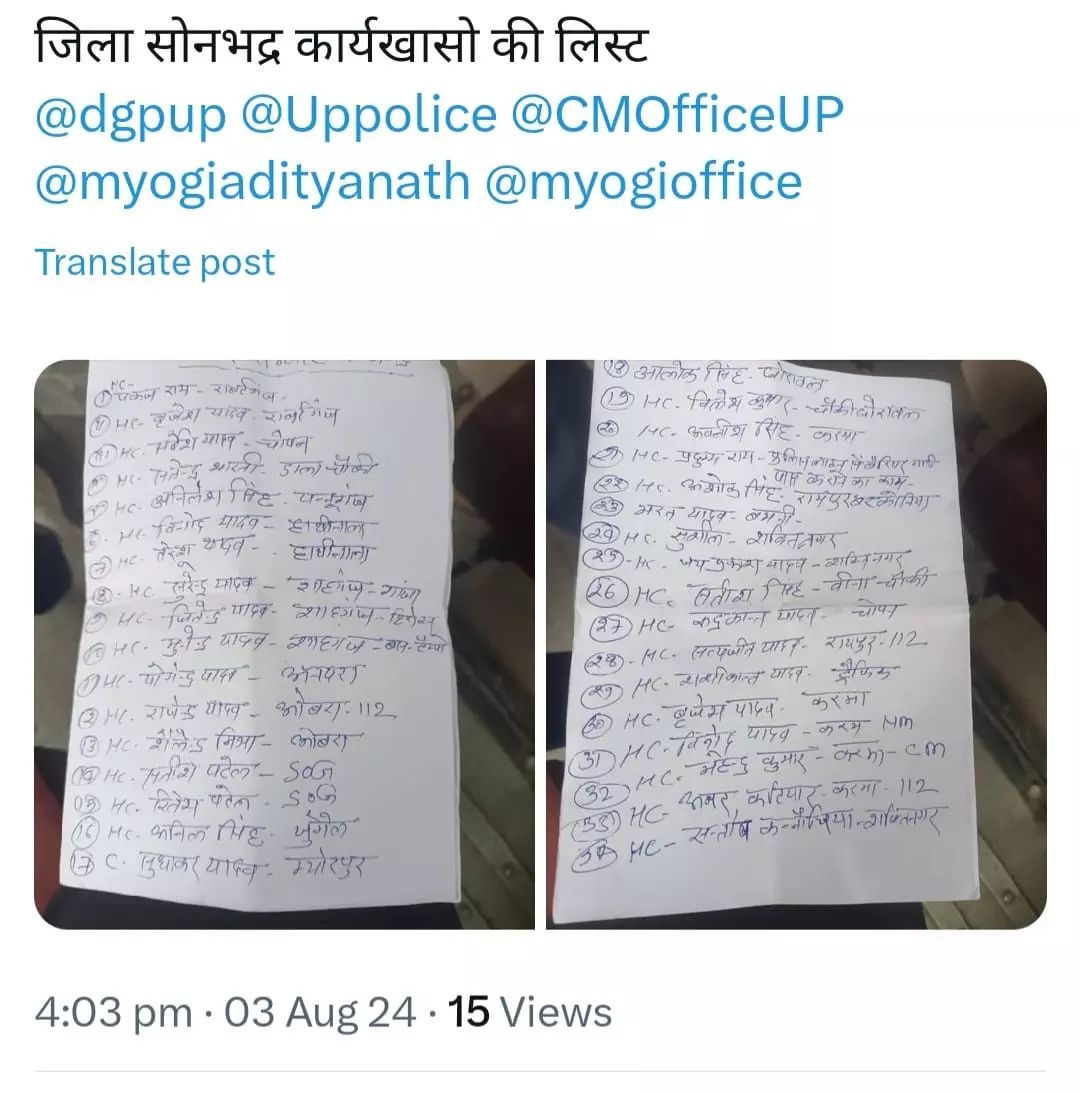 जिला सोनभद्र कार्यखासो की लिस्ट
@dgpup @Uppolice @CMOfficeUP
@myogiadityanath @myogioffice
Translate post
HC-
① पंकज राम - राबर्टगंज.
HC- बृजेश यादव - राबर्टगंज
HC. यादव - चोपन
HC- जितेन्द्र भारती - डाला चौकी
HC- अखिलेश सिंह - पन्नूगंज
6. HC. विनोद यादव - हाथीनाला
7 HC- यादव - हाथीनाला
8. HC- सुरेन्द्र यादव - शाहगंज - गांजा
9 HC- जितेन्द्र यादव - शाहगंज -
HC- यादव - शाहगंज -
HC- योगेन्द्र यादव -
12 HC. राजेन्द्र यादव - ओबरा - 112
13 HC- शैलेन्द्र मिश्रा - ओबरा
14 HC. सतीश पटेल - SOG
15 HC. रितेश पटेल - SOG
16 HC. अनिल सिंह - जुगैल
17 C. सुधाकर यादव - म्योरपुर
18 आलोक सिंह - घोरावल
19 HC- कुमार - चौकी घोरावल
20 HC- अवनीश सिंह - करमा
21 HC- राय - पुलिस लाइन में
पास कराने का काम -
22 HC. अशोक सिंह - रामपुर
23 भरत यादव - बभनी -
24 HC. सुशील - शक्तिनगर
25 - HC. जयप्रकाश यादव - शक्तिनगर
26 HC. सतीश सिंह - बीना - चौकी
27 HC- रुद्रकान्त यादव - चोपन
28 - HC. सत्यजीत यादव - रायपुर - 112
29 HC. शशीकान्त यादव - ट्रैफिक
30 HC. बृजेश यादव - करमा
31 HC- विनोद यादव - करमा HM
32 HC- महेन्द्र कुमार - करमा - CM
33 HC- अमर कटियार - करमा - 112
34 HC- सन्तोष कन्नौजिया - शक्तिनगर
4:03 pm · 03 Aug 24 · 15 Views